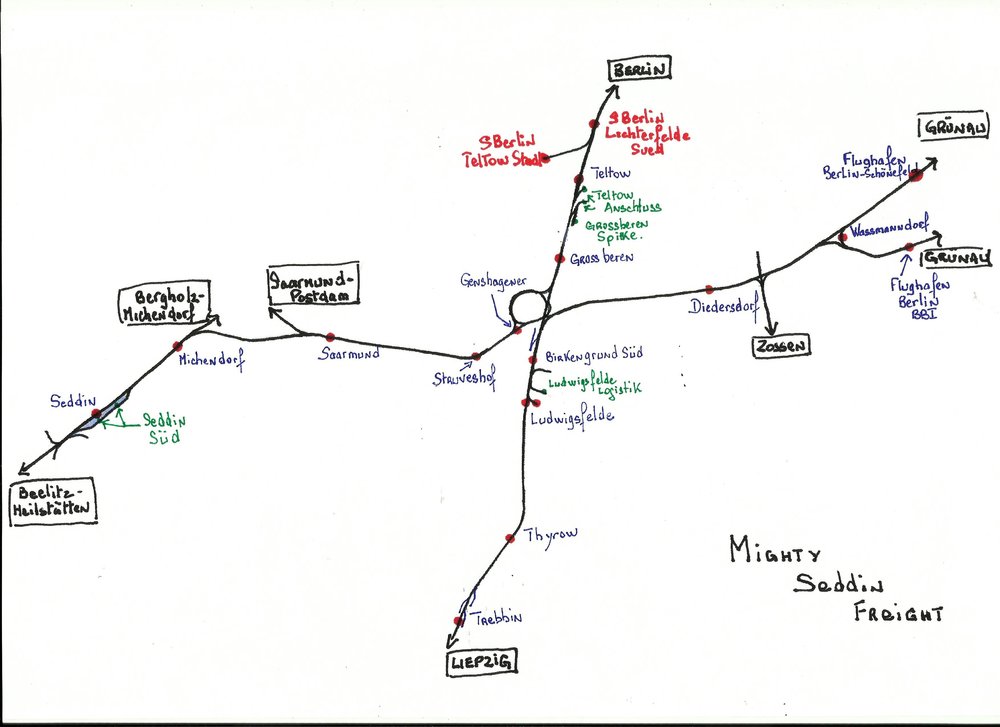 BERLIN
SBerlin
Lichterfelde
Sued
SBerlin
Teltow Stadt
GRÜNAU
Flughafen
Berlin-Schönefeld
Teltow
Teltow
Anschluss
Grossberen
Spitke.
Wassmanndorf
GRÜNAU
Grossberen
Flughafen
Berlin
BBI
Genshagener
Saarmund-
Postdam
Bergholz-
Michendorf
Diedersdorf
Zossen
Michendorf
Saarmund
Struveshof
Birkengrund Süd
Ludwigsfelde
Logistik
Ludwigsfelde
Seddin
Seddin
Süd
Beelitz-
Heilstätten
Thyrow
Mighty
Seddin
Freight
Trebbin
LIEPZIG